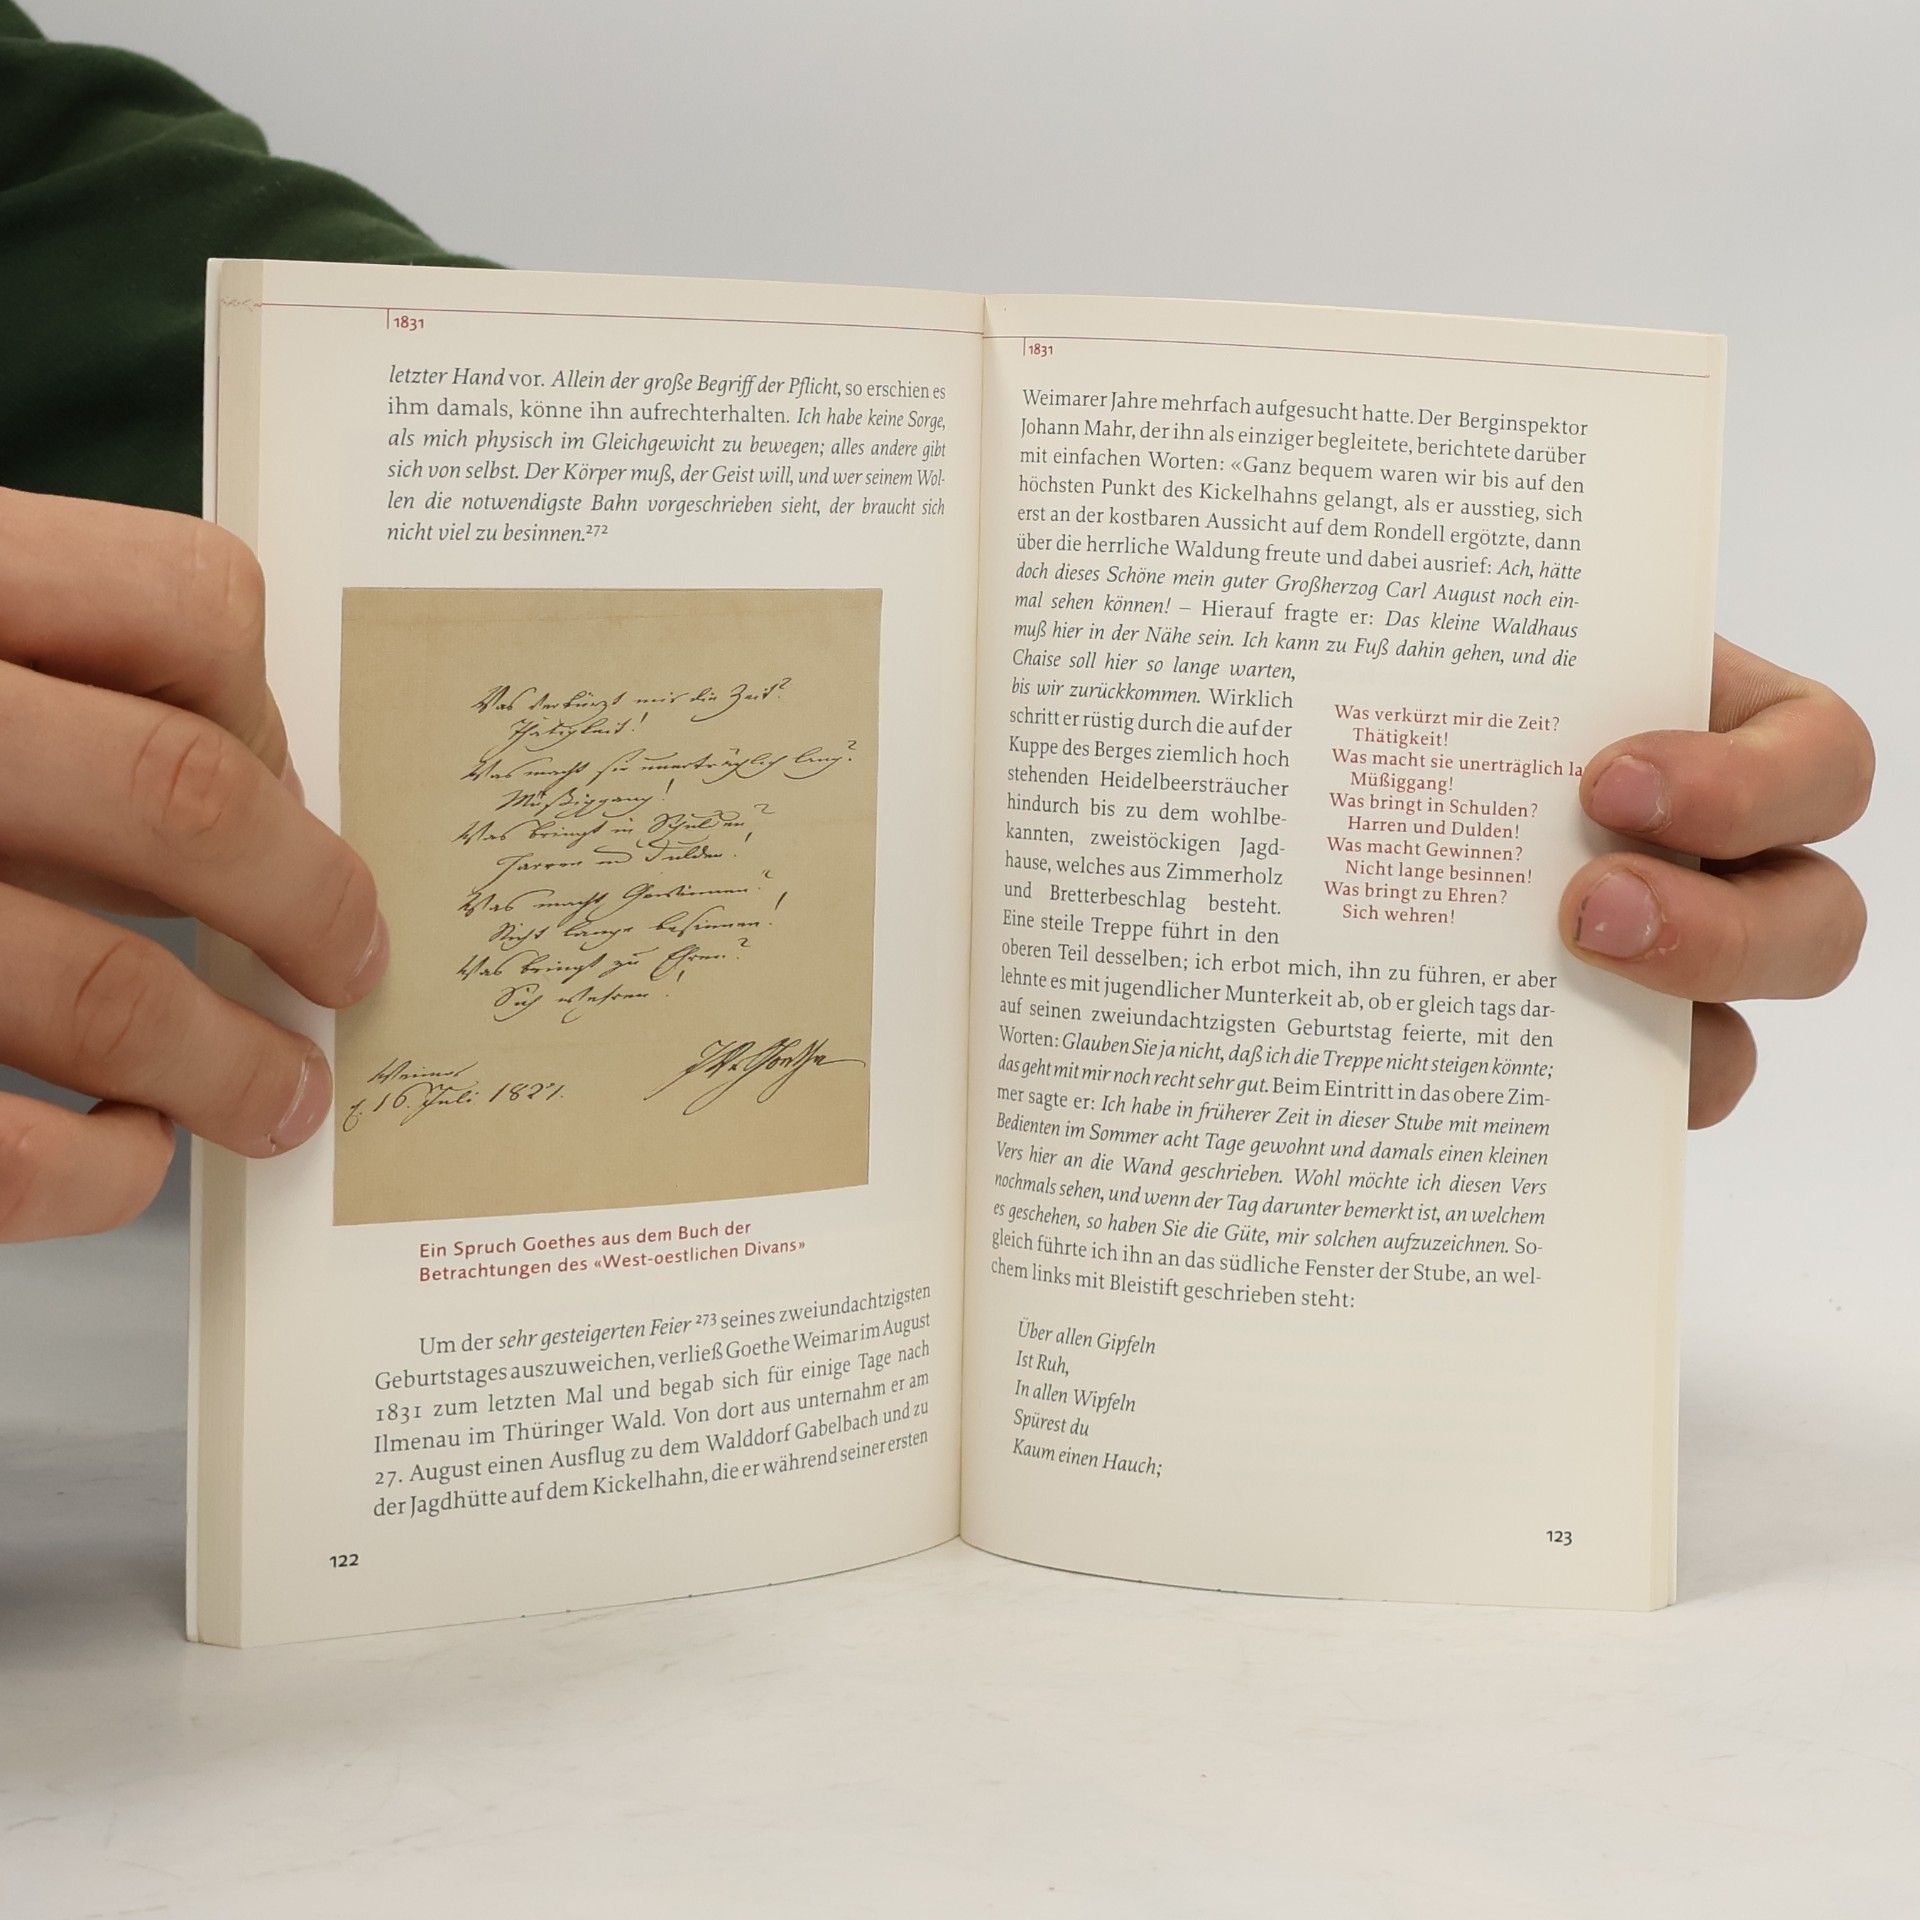 1831
letzter Hand vor. Allein der große Begriff der Pflicht, so erschien es
ihm damals, könne ihn aufrechterhalten. Ich habe keine Sorge,
als mich physisch im Gleichgewicht zu bewegen; alles andere gibt
sich von selbst. Der Körper muß, der Geist will, und wer seinem Wol-
len die notwendigste Bahn vorgeschrieben sieht, der braucht sich
nicht viel zu besinnen.²⁷²
Was verkürzt mir die Zeit?
Thätigkeit!
Was macht sie unerträglich lang?
Müßiggang!
Was bringt in Schulden?
Harren und Dulden!
Was macht Gewinnen?
Nicht lange besinnen!
Was bringt zu Ehren?
Sich wehren!
Weimar
d. 16. Juli 1821.
JWvGoethe
Ein Spruch Goethes aus dem Buch der
Betrachtungen des «West-oestlichen Divans»
Um der sehr gesteigerten Feier ²⁷³ seines zweiundachtzigsten
Geburtstages auszuweichen, verließ Goethe Weimar im August
1831 zum letzten Mal und begab sich für einige Tage nach
Ilmenau im Thüringer Wald. Von dort aus unternahm er am
27. August einen Ausflug zu dem Walddorf Gabelbach und zu
der Jagdhütte auf dem Kickelhahn, die er während seiner ersten
122
1831
Weimarer Jahre mehrfach aufgesucht hatte. Der Berginspektor
Johann Mahr, der ihn als einziger begleitete, berichtete darüber
mit einfachen Worten: «Ganz bequem waren wir bis auf den
höchsten Punkt des Kickelhahns gelangt, als er ausstieg, sich
erst an der kostbaren Aussicht auf dem Rondell ergötzte, dann
über die herrliche Waldung freute und dabei ausrief: Ach, hätte
doch dieses Schöne mein guter Großherzog Carl August noch ein-
mal sehen können! – Hierauf fragte er: Das kleine Waldhaus
muß hier in der Nähe sein. Ich kann zu Fuß dahin gehen, und die
Chaise soll hier so lange warten,
bis wir zurückkommen. Wirklich
schritt er rüstig durch die auf der
Kuppe des Berges ziemlich hoch
stehenden Heidelbeersträucher
hindurch bis zu dem wohlbe-
kannten, zweistöckigen Jagd-
hause, welches aus Zimmerholz
und Bretterbeschlag besteht.
Eine steile Treppe führt in den
oberen Teil desselben; ich erbot mich, ihn zu führen, er aber
lehnte es mit jugendlicher Munterkeit ab, ob er gleich tags dar-
auf seinen zweiundachtzigsten Geburtstag feierte, mit den
Worten: Glauben Sie ja nicht, daß ich die Treppe nicht steigen könnte;
das geht mit mir noch recht sehr gut. Beim Eintritt in das obere Zim-
mer sagte er: Ich habe in früherer Zeit in dieser Stube mit meinem
Bedienten im Sommer acht Tage gewohnt und damals einen kleinen
Vers hier an die Wand geschrieben. Wohl möchte ich diesen Vers
nochmals sehen, und wenn der Tag darunter bemerkt ist, an welchem
es geschehen, so haben Sie die Güte, mir solchen aufzuzeichnen. So-
gleich führte ich ihn an das südliche Fenster der Stube, an wel-
chem links mit Bleistift geschrieben steht:
Was verkürzt mir die Zeit?
Thätigkeit!
Was macht sie unerträglich la
Müßiggang!
Was bringt in Schulden?
Harren und Dulden!
Was macht Gewinnen?
Nicht lange besinnen!
Was bringt zu Ehren?
Sich wehren!
Über allen Gipfeln
Ist Ruh,
In allen Wipfeln
Spürest du
Kaum einen Hauch;
123